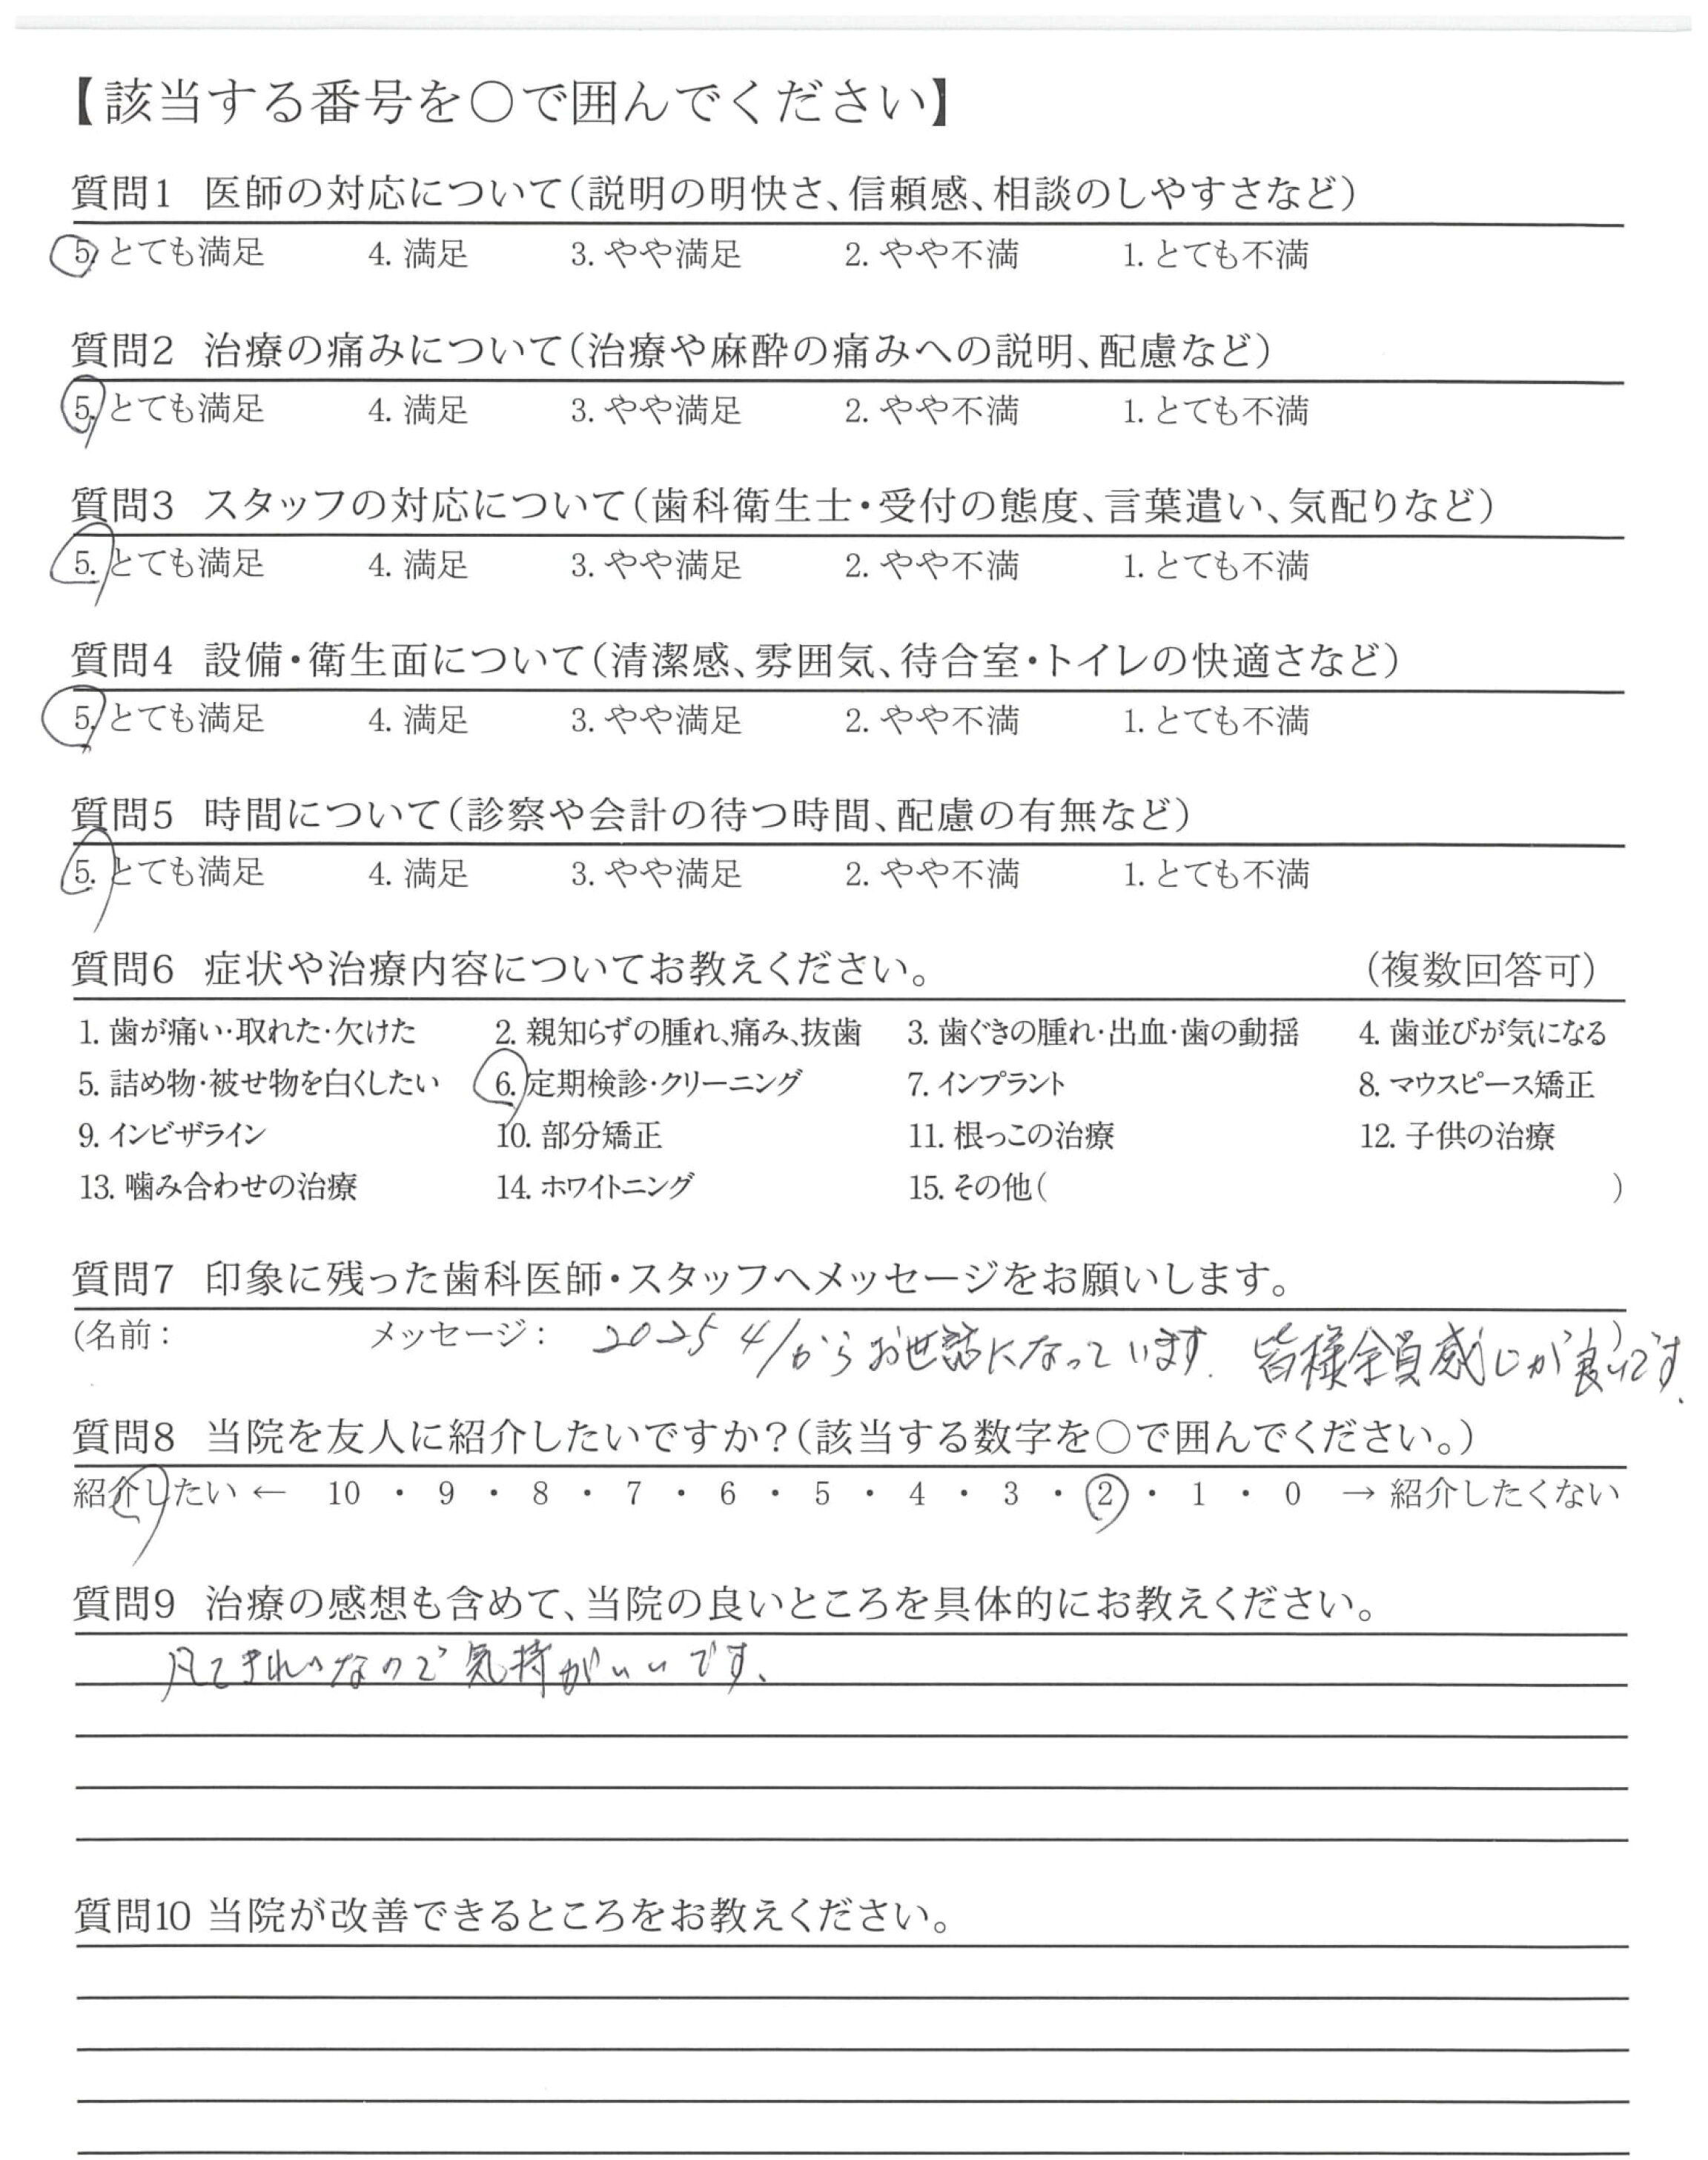 【該当する番号を○で囲んでください】
質問1 医師の対応について(説明の明快さ、信頼感、相談のしやすさなど)
5. とても満足 4. 満足 3. やや満足 2. やや不満 1. とても不満
質問2 治療の痛みについて(治療や麻酔の痛みへの説明、配慮など)
5. とても満足 4. 満足 3. やや満足 2. やや不満 1. とても不満
質問3 スタッフの対応について(歯科衛生士・受付の態度、言葉遣い、気配りなど)
5. とても満足 4. 満足 3. やや満足 2. やや不満 1. とても不満
質問4 設備・衛生面について(清潔感、雰囲気、待合室・トイレの快適さなど)
5. とても満足 4. 満足 3. やや満足 2. やや不満 1. とても不満
質問5 時間について(診察や会計の待つ時間、配慮の有無など)
5. とても満足 4. 満足 3. やや満足 2. やや不満 1. とても不満
質問6 症状や治療内容についてお教えください。 (複数回答可)
1. 歯が痛い・取れた・欠けた 2. 親知らずの腫れ、痛み、抜歯 3. 歯ぐきの腫れ・出血・歯の動揺 4. 歯並びが気になる
5. 詰め物・被せ物を白くしたい 6. 定期検診・クリーニング 7. インプラント 8. マウスピース矯正
9. インビザライン 10. 部分矯正 11. 根っこの治療 12. 子供の治療
13. 噛み合わせの治療 14. ホワイトニング 15. その他( )
質問7 印象に残った歯科医師・スタッフへメッセージをお願いします。
(名前: メッセージ: 2025 4/からお世話になっています. 皆様全員感じが良いです. )
質問8 当院を友人に紹介したいですか?(該当する数字を○で囲んでください。)
紹介したい ← 10 ・ 9 ・ 8 ・ 7 ・ 6 ・ 5 ・ 4 ・ 3 ・ 2 ・ 1 ・ 0 → 紹介したくない
質問9 治療の感想も含めて、当院の良いところを具体的にお教えください。
きれいなので気持がいいです、
質問10 当院が改善できるところをお教えください。